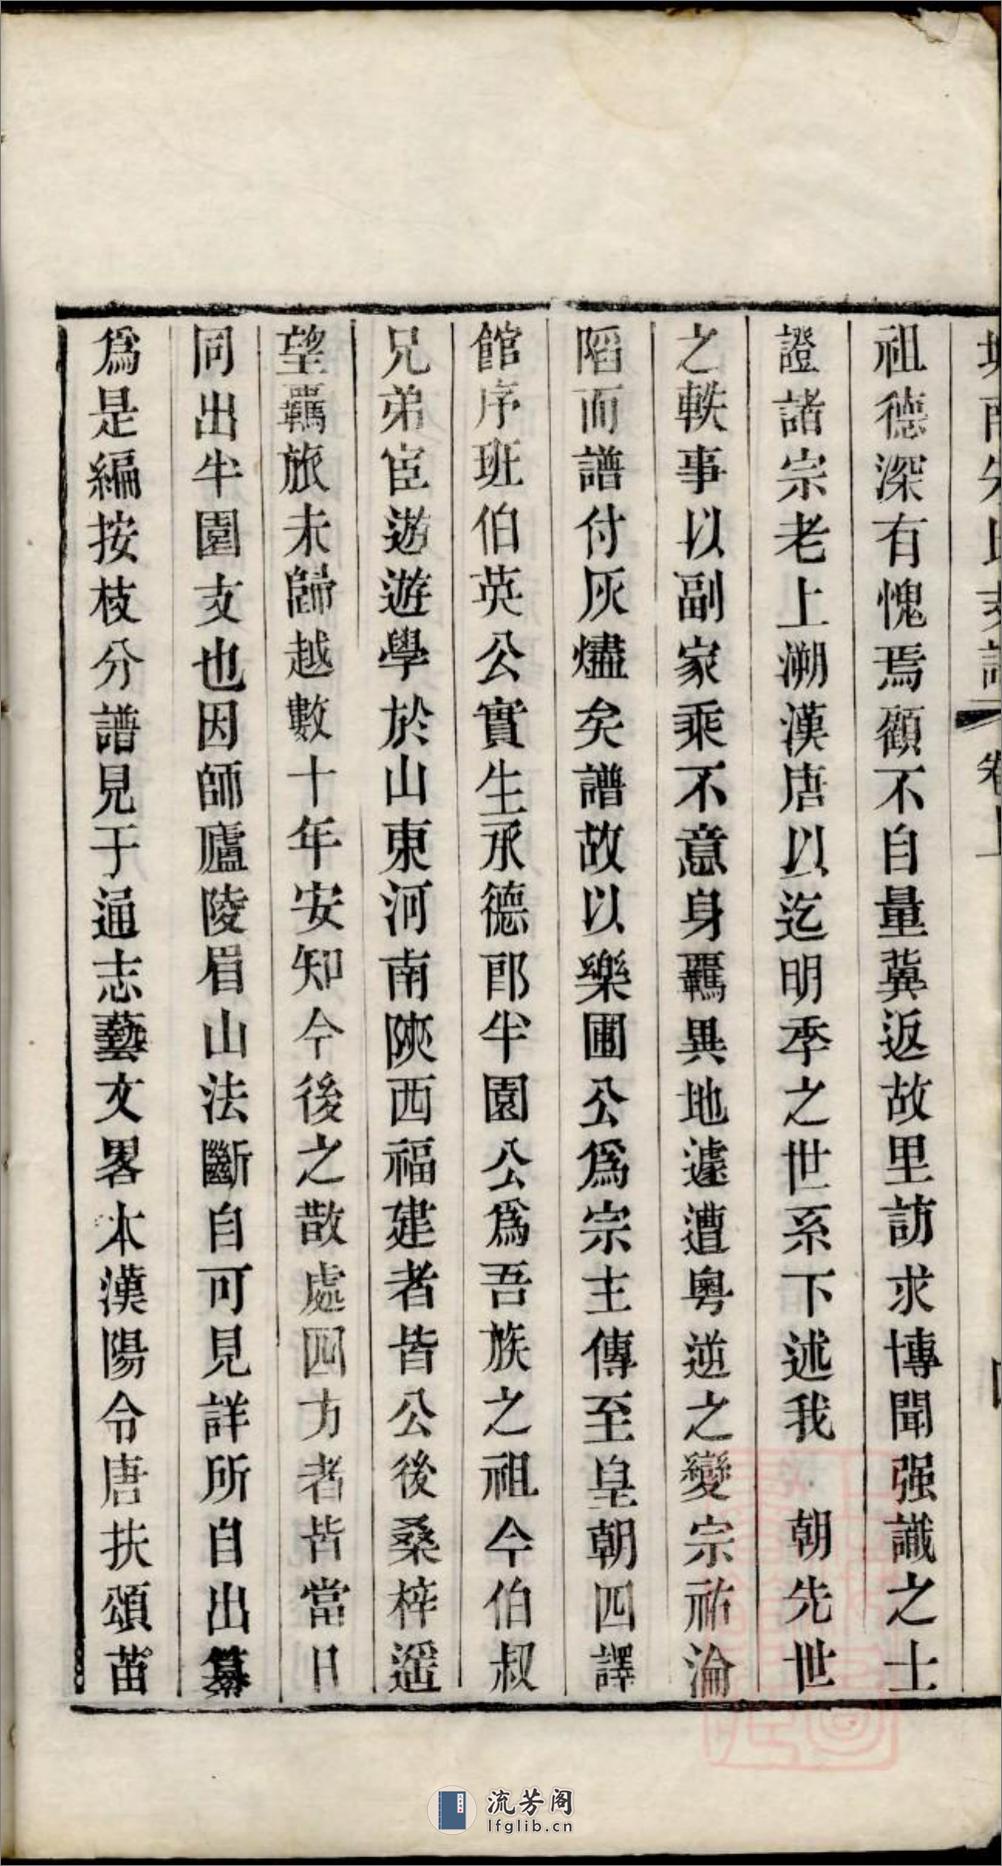 祖德深有愧焉顧不自量冀返故里訪求博聞强識之士
證諸宗老上溯漢唐以迄明季之世系下述我 朝先世
之軼事以副家乘不意身羈異地遽遭粵逆之變宗祏淪
陷而譜付灰燼矣譜故以樂圃公為宗主傳至皇朝四譯
館序班伯英公實生承德郎半園公為吾族之祖今伯叔
兄弟宦遊遊學於山東河南陝西福建者皆公後桑梓遥
望羈旅未歸越數十年安知今後之散處四方者皆當日
同出半園支也因師廬陵眉山法斷自可見詳所自出纂
為是編按枝分譜見于通志藝文畧本漢陽令唐扶頌苗
流芳阁
lfglib.cn